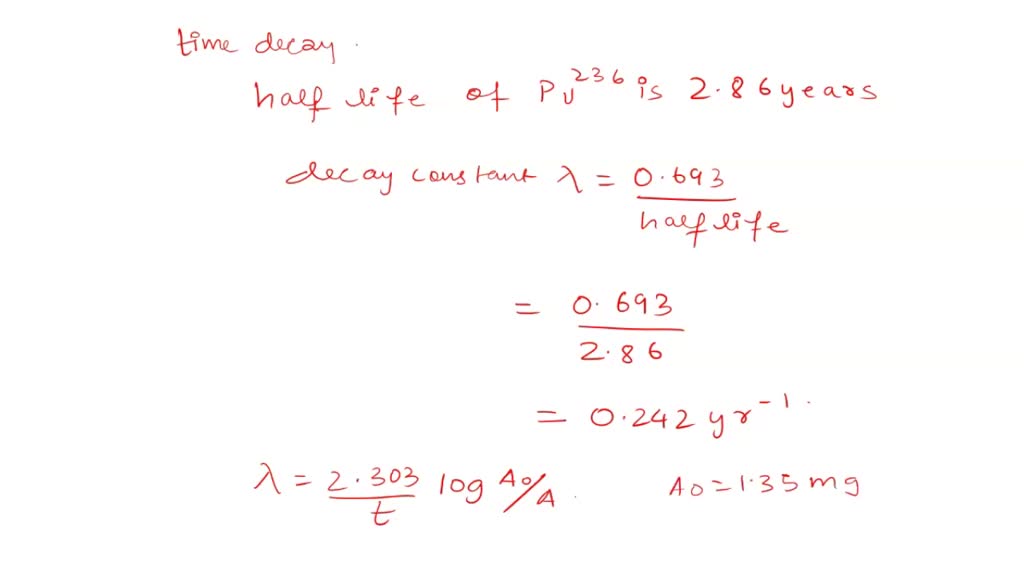 time decay.
half life of Pu²³⁶ is 2.86years
decay constant λ = 0.693
half life
= 0.693
2.86
= 0.242 yr⁻¹.
λ = 2.303 log A₀/A. A₀ = 1.35 mg
t